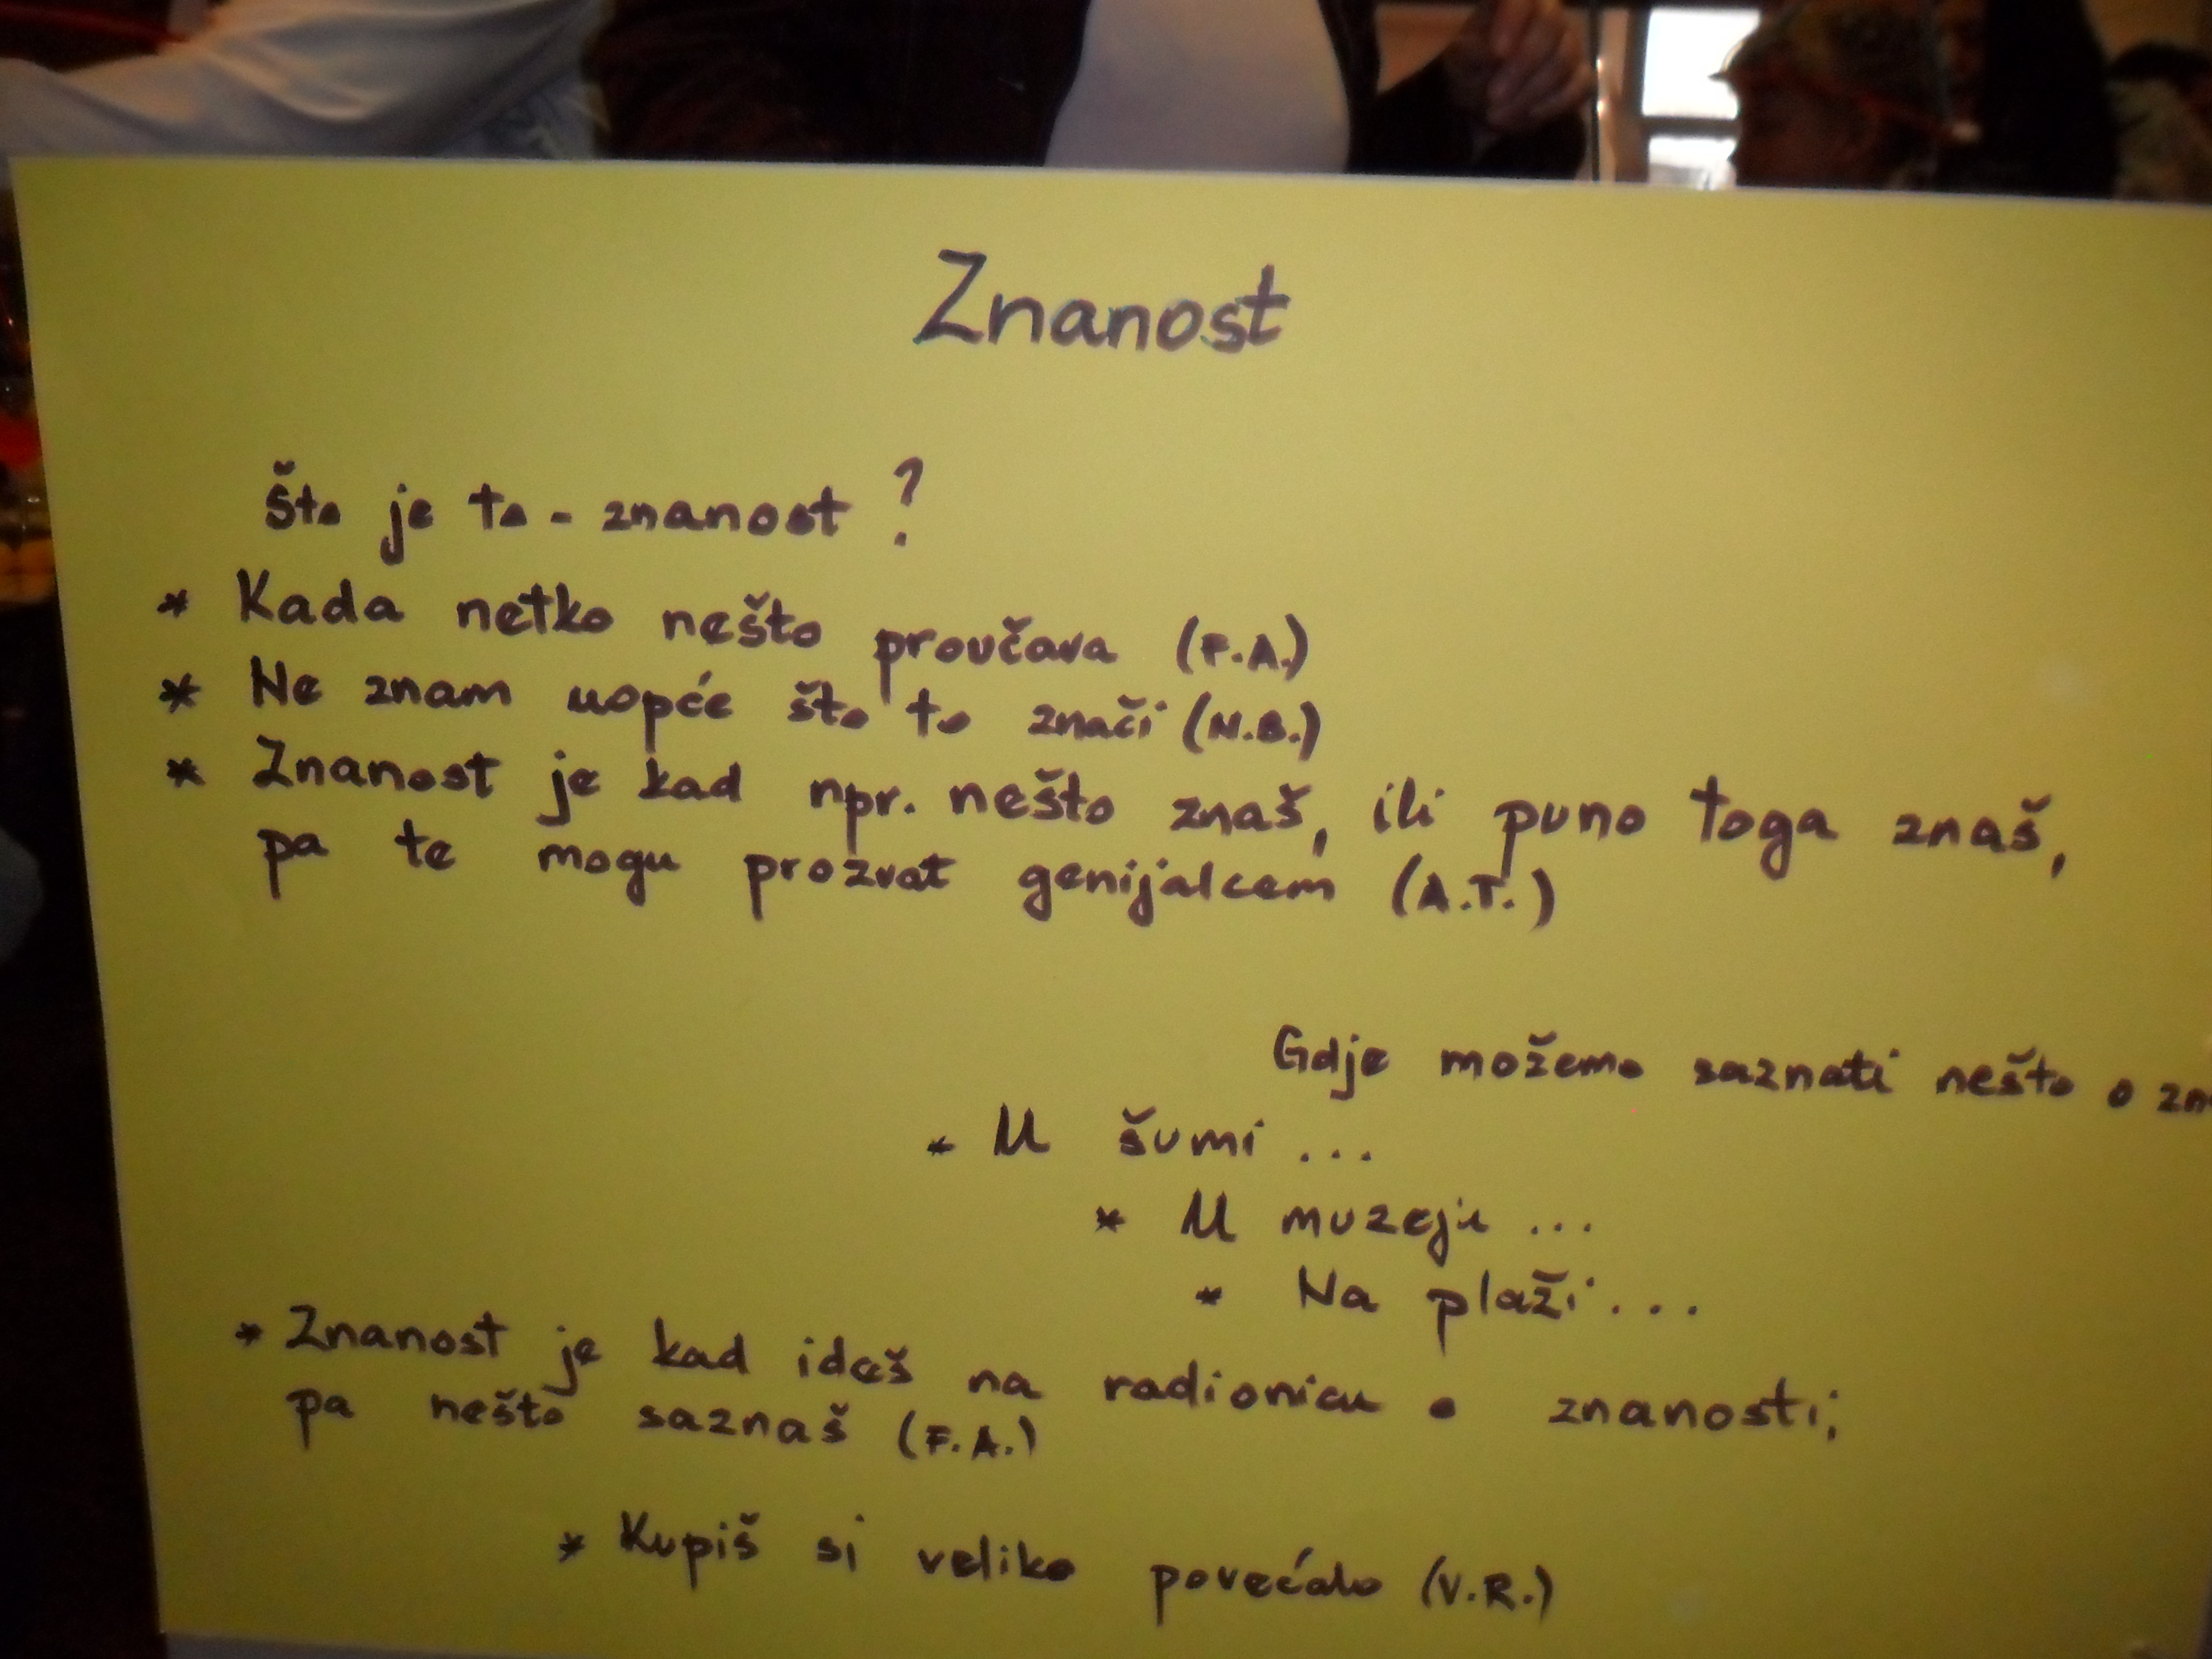 Znanost
Što je to - znanost?
* Kada netko nešto proučava (F.A.)
* Ne znam uopće što to znači (N.B.)
* Znanost je kad npr. nešto znaš, ili puno toga znaš,
pa te mogu prozvat genijalcem (A.T.)
Gdje možemo saznati nešto o
* U šumi ...
* U muzeju ...
* Na plaži ...
* Znanost je kad ideš na radionicu o znanosti;
pa nešto saznaš (F.A.)
* Kupiš si veliko povećalo (V.R.)